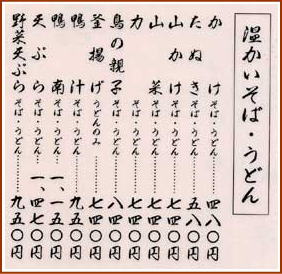 温かいそば・うどん
かけ そば・うどん……四八〇円
たぬき そば・うどん……五八〇円
山かけ そば・うどん……七四〇円
山菜 そば・うどん……七四〇円
力 そば・うどん……七四〇円
鳥の親子 そば・うどん……八四〇円
釜揚げ うどんのみ……七四〇円
鴨汁 そば・うどん……九五〇円
鴨南 そば・うどん……一、一五〇円
天ぷら そば・うどん……一、四七〇円
野菜天ぷら そば・うどん……九五〇円